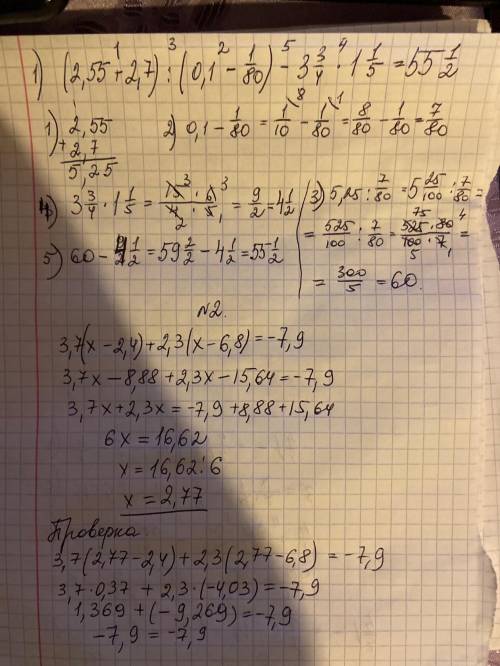 1) (2,55 + 2,7) : (0,1 − 1/80) − 3 3/4 · 1 1/5 = 55 1/2
1) 2,55
+ 2,7
5,25
2) 0,1 − 1/80 = 1/10 − 1/80 = 8/80 − 1/80 = 7/80
4) 3 3/4 · 1 1/5 = 15 · 6 / 4 · 5 = 9/2 = 4 1/2
5) 60 − 4 1/2 = 59 2/2 − 4 1/2 = 55 1/2
3) 5,25 : 7/80 = 5 25/100 : 7/80 =
= 525/100 : 7/80 = 525 · 80 / 100 · 7 =
= 300/5 = 60.
№2.
3,7(x − 2,4) + 2,3(x − 6,8) = −7,9
3,7x − 8,88 + 2,3x − 15,64 = −7,9
3,7x + 2,3x = −7,9 + 8,88 + 15,64
6x = 16,62
x = 16,62 : 6
x = 2,77
Проверка
3,7(2,77 − 2,4) + 2,3(2,77 − 6,8) = −7,9
3,7 · 0,37 + 2,3 · (−4,03) = −7,9
1,369 + (−9,269) = −7,9
−7,9 = −7,9